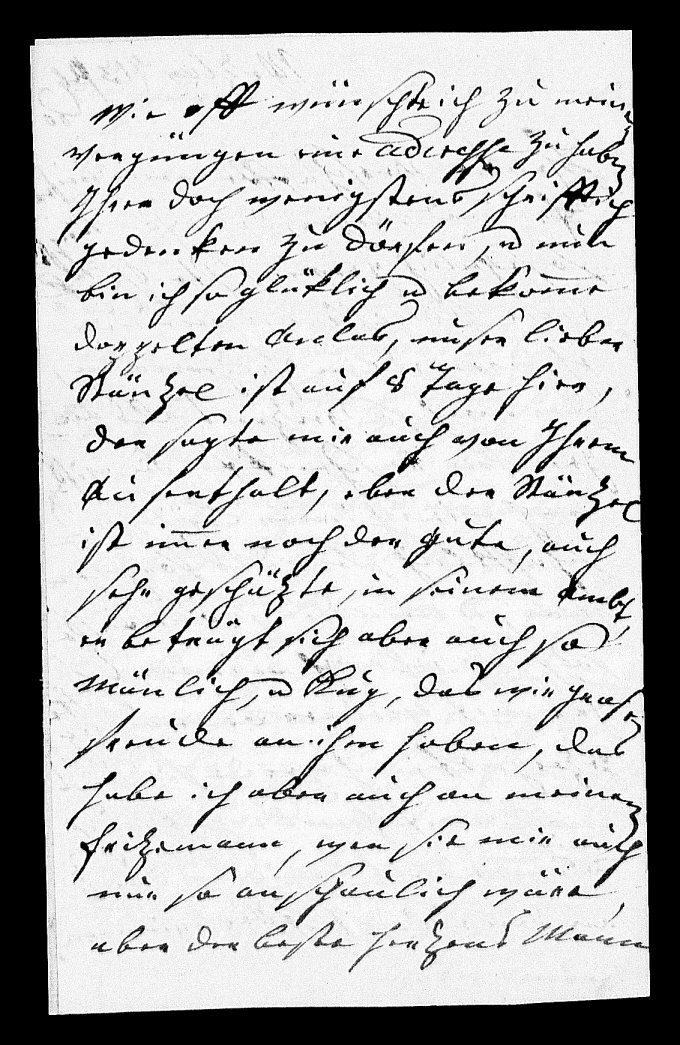 wie oft wünschte ich zu meinen
Vergnügen eine adresse zu haben
Ihrer doch wenigstens schrifftlich
gedenken zu dörfen, u nun
bin ich so glüklich u bekome
doppelten Anlas, unser lieber
Stänzel ist auf 8 Tage hier,
der sagte mir auch von Ihrem
Aufenthalt, eben der Stänzel
ist imer noch der gute, auch
sehr geschäzte, in seinem Ambt,
er beträgt sich aber auch so
Mänlich, u klug, das wir grose
freude an ihm haben, das
habe ich aber auch an meinen
frizemann, wen sie mir auch
nur so anschaulich wäre,
aber der beste herzens Mann